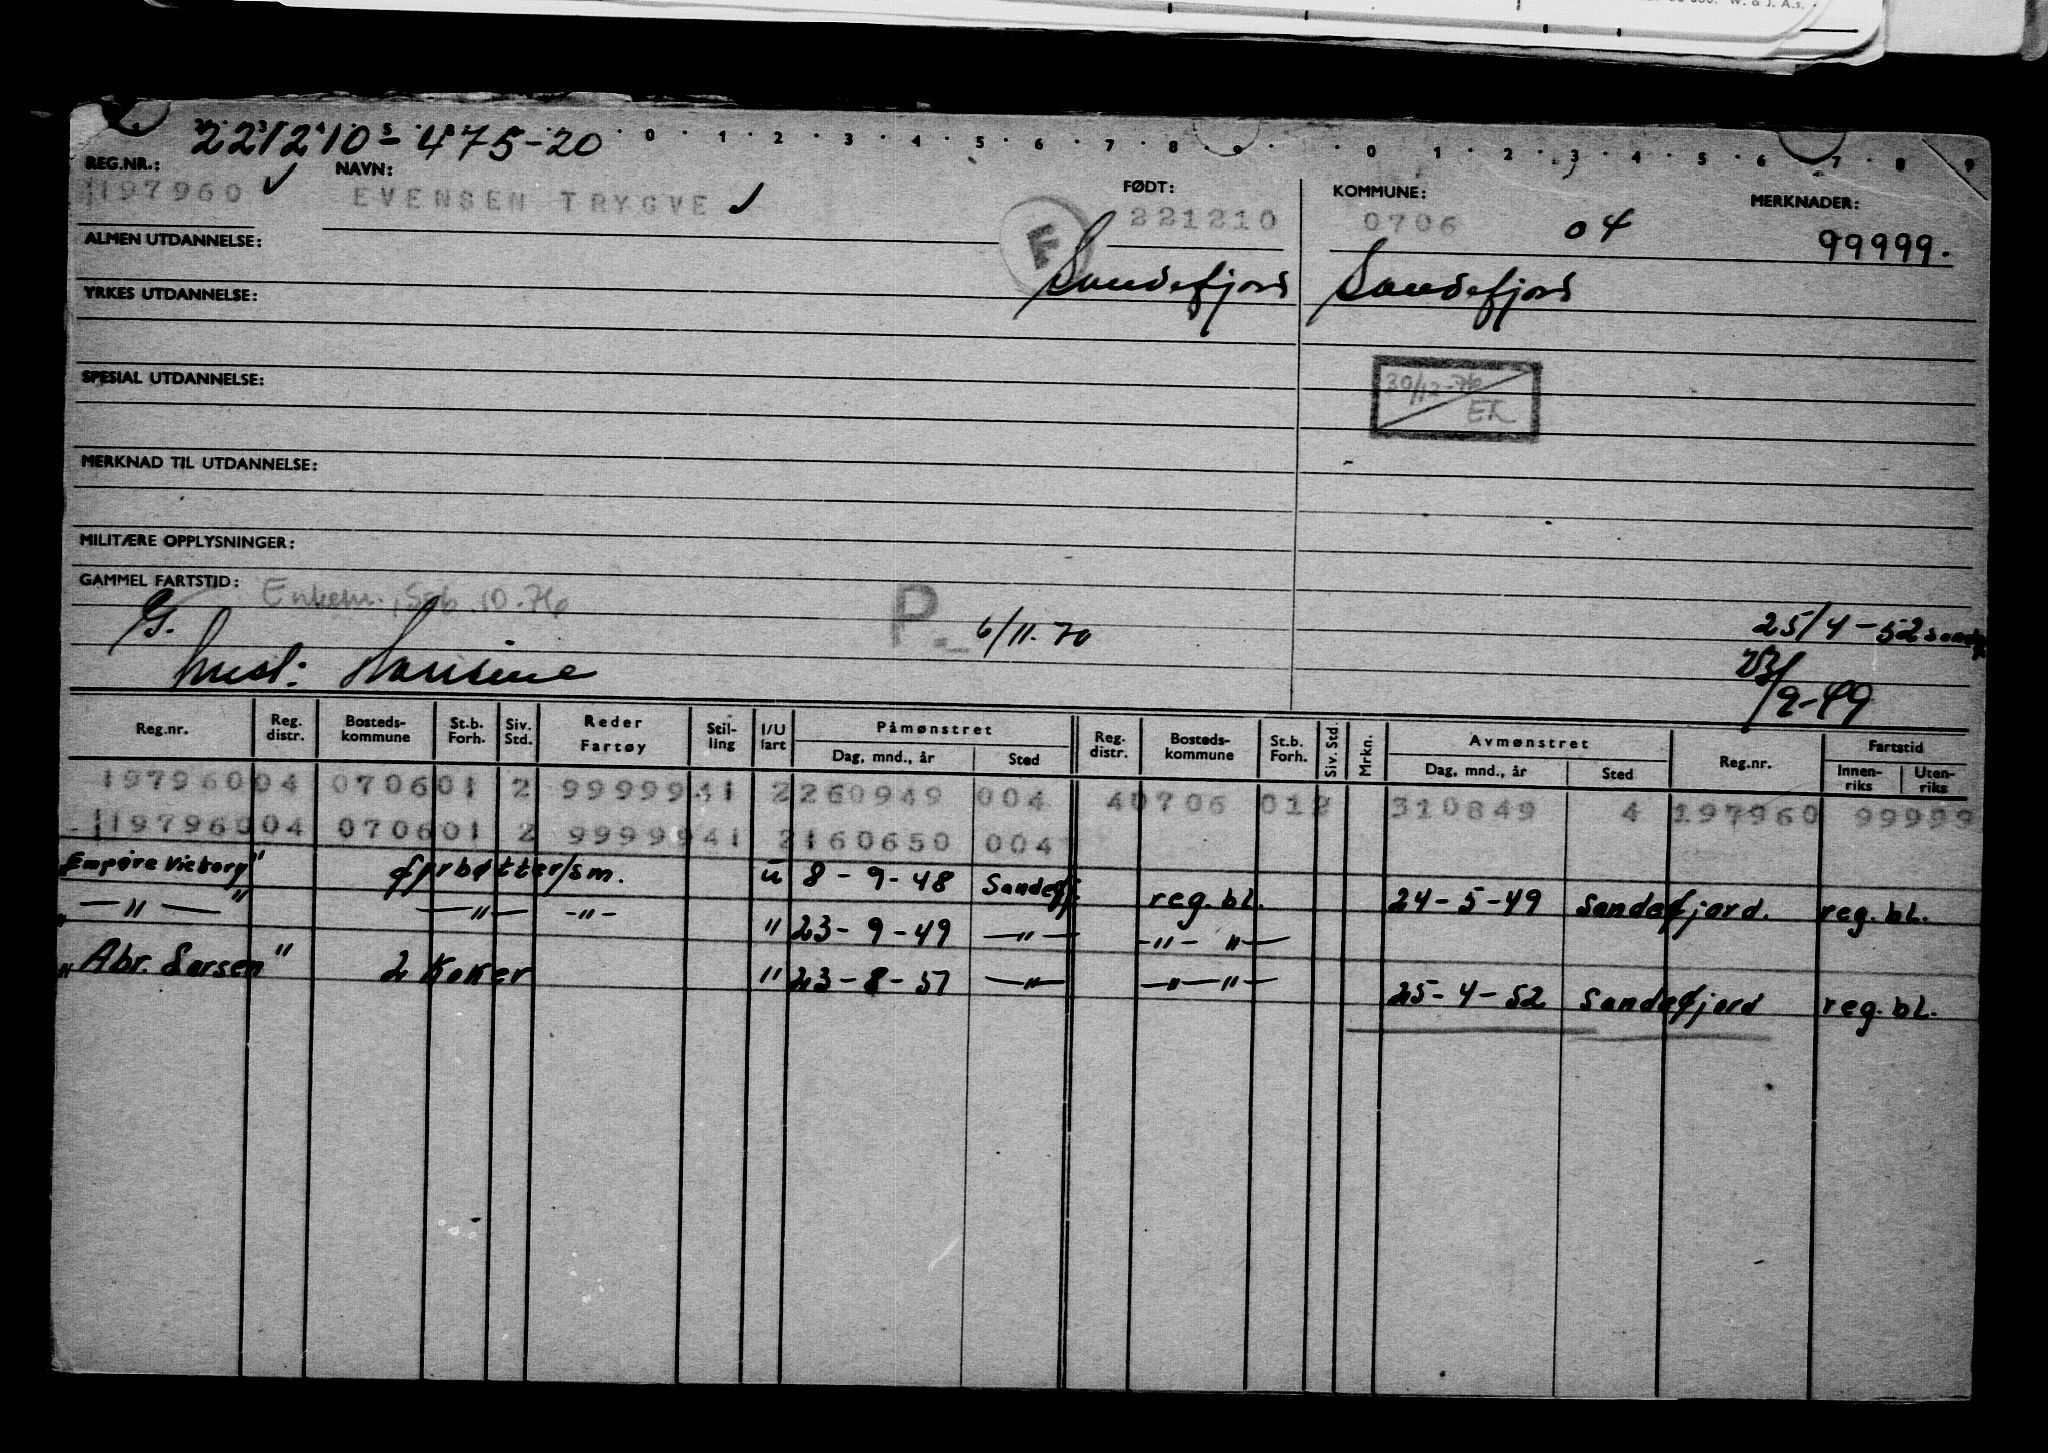 W. & J. A.s.
221210-475-20
0 . 1 . 2 . 3 . 4 . 5 . 6 . 7 . 8 . 9 . . 0 . 1 . 2 . 3 . 4 . 5 . 6 . 7 . 8 . 9
REG.NR.: NAVN: FØDT: KOMMUNE: MERKNADER:
197960 ✓ EVENSEN TRYGVE ✓ 221210 0706 04 99999.
F
ALMEN UTDANNELSE:
Sandefjord Sandefjord
YRKES UTDANNELSE:
SPESIAL UTDANNELSE:
30/12-76
ER
MERKNAD TIL UTDANNELSE:
MILITÆRE OPPLYSNINGER:
GAMMEL FARTSTID:
G. P. 6/11.70 25/4-52 Sandefj.
Hansine
23/9-49
Reg.nr. Reg. distr. Bosteds-kommune St.b. Forh. Siv. Std. Reder Fartøy Stil-ling I/U fart Påmønstret Dag, mnd., år Sted Reg. distr. Bosteds-kommune St.b. Forh. Siv. Std. Mrkn. Avmønstret Dag, mnd., år Sted Reg.nr. Fartstid Innen-riks Uten-riks
197960 04 0706 01 2 99999 41 2 260949 004 4 0706 01 2 310849 4 197960 99999
197960 04 0706 01 2 99999 41 2 160650 004
"Empire Victory" fyrbøtter/sm. u 8-9-48 Sandefj. reg. bl. 24-5-49 Sandefjord. reg. bl.
" —"— " —"— -"- " 23-9-49 —"— -"- "—
"Abr. Larsen" 2 Koker " 23-8-51 —"— —"—"— 25-4-52 Sandefjord reg. bl.